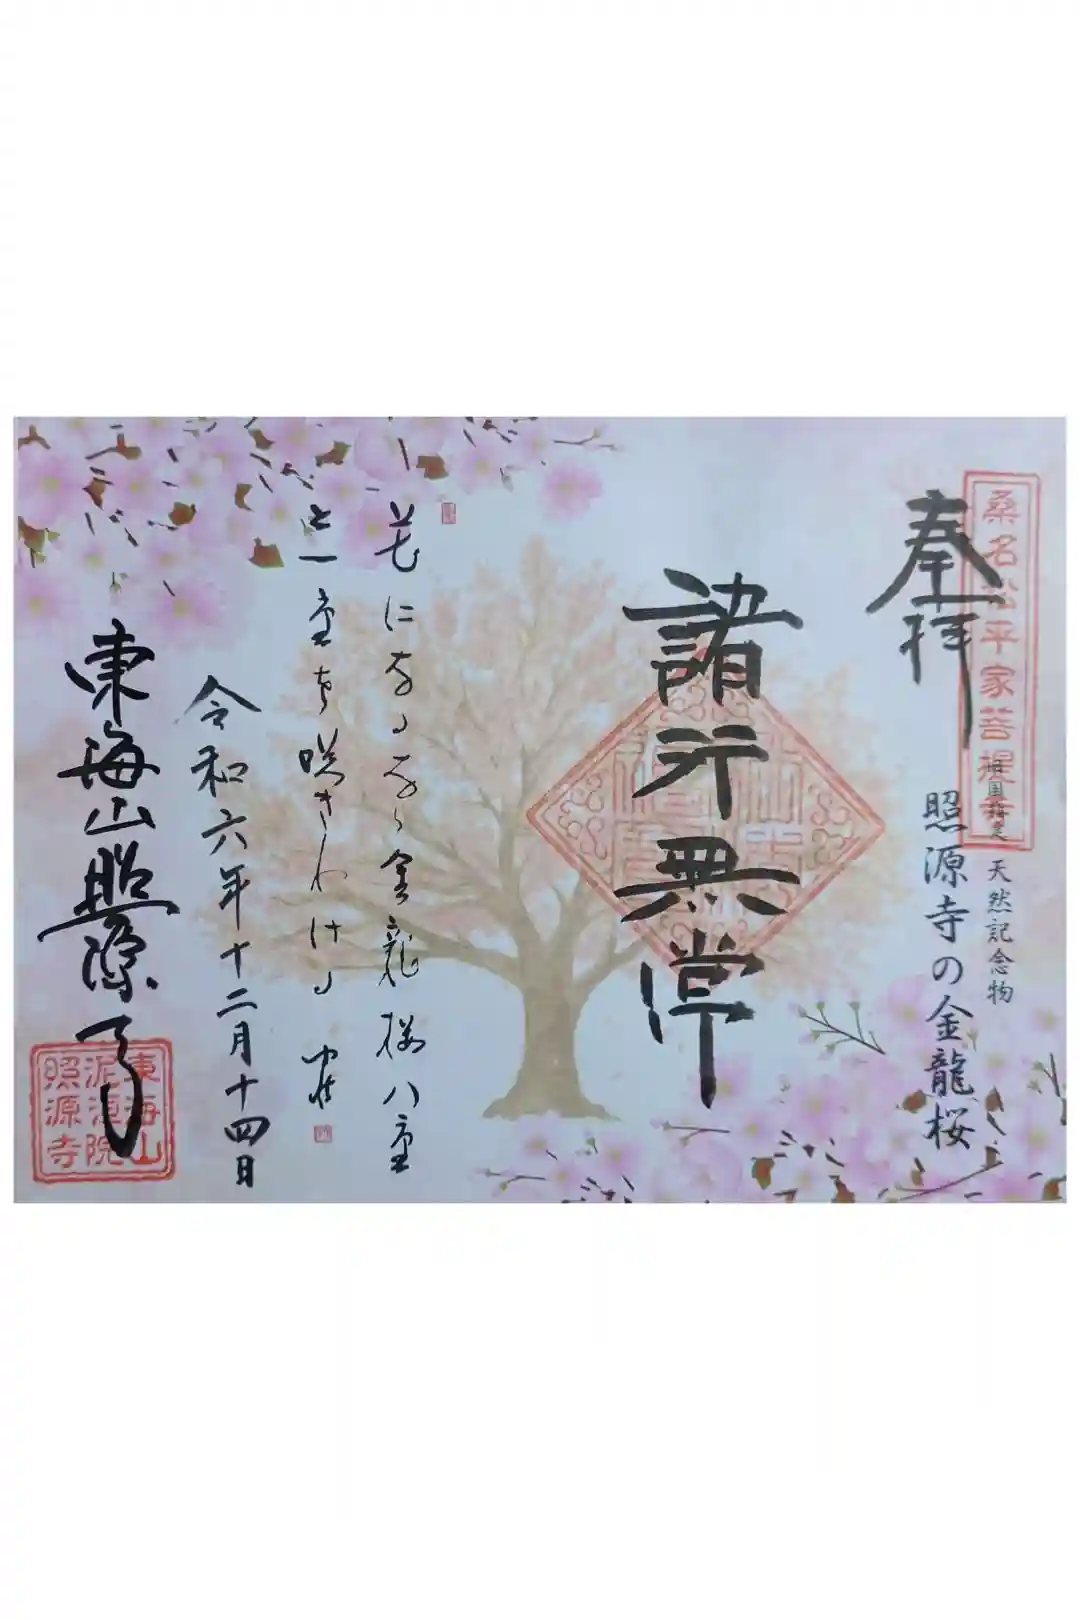 奉拝
桑名松平家菩提寺
天然記念物
照源寺の金龍桜
諸行無常
花になる
金龍桜八重
と一重を咲きわけ
令和六年十二月十四日
東海山照源寺
東海山
泥洹院
照源寺